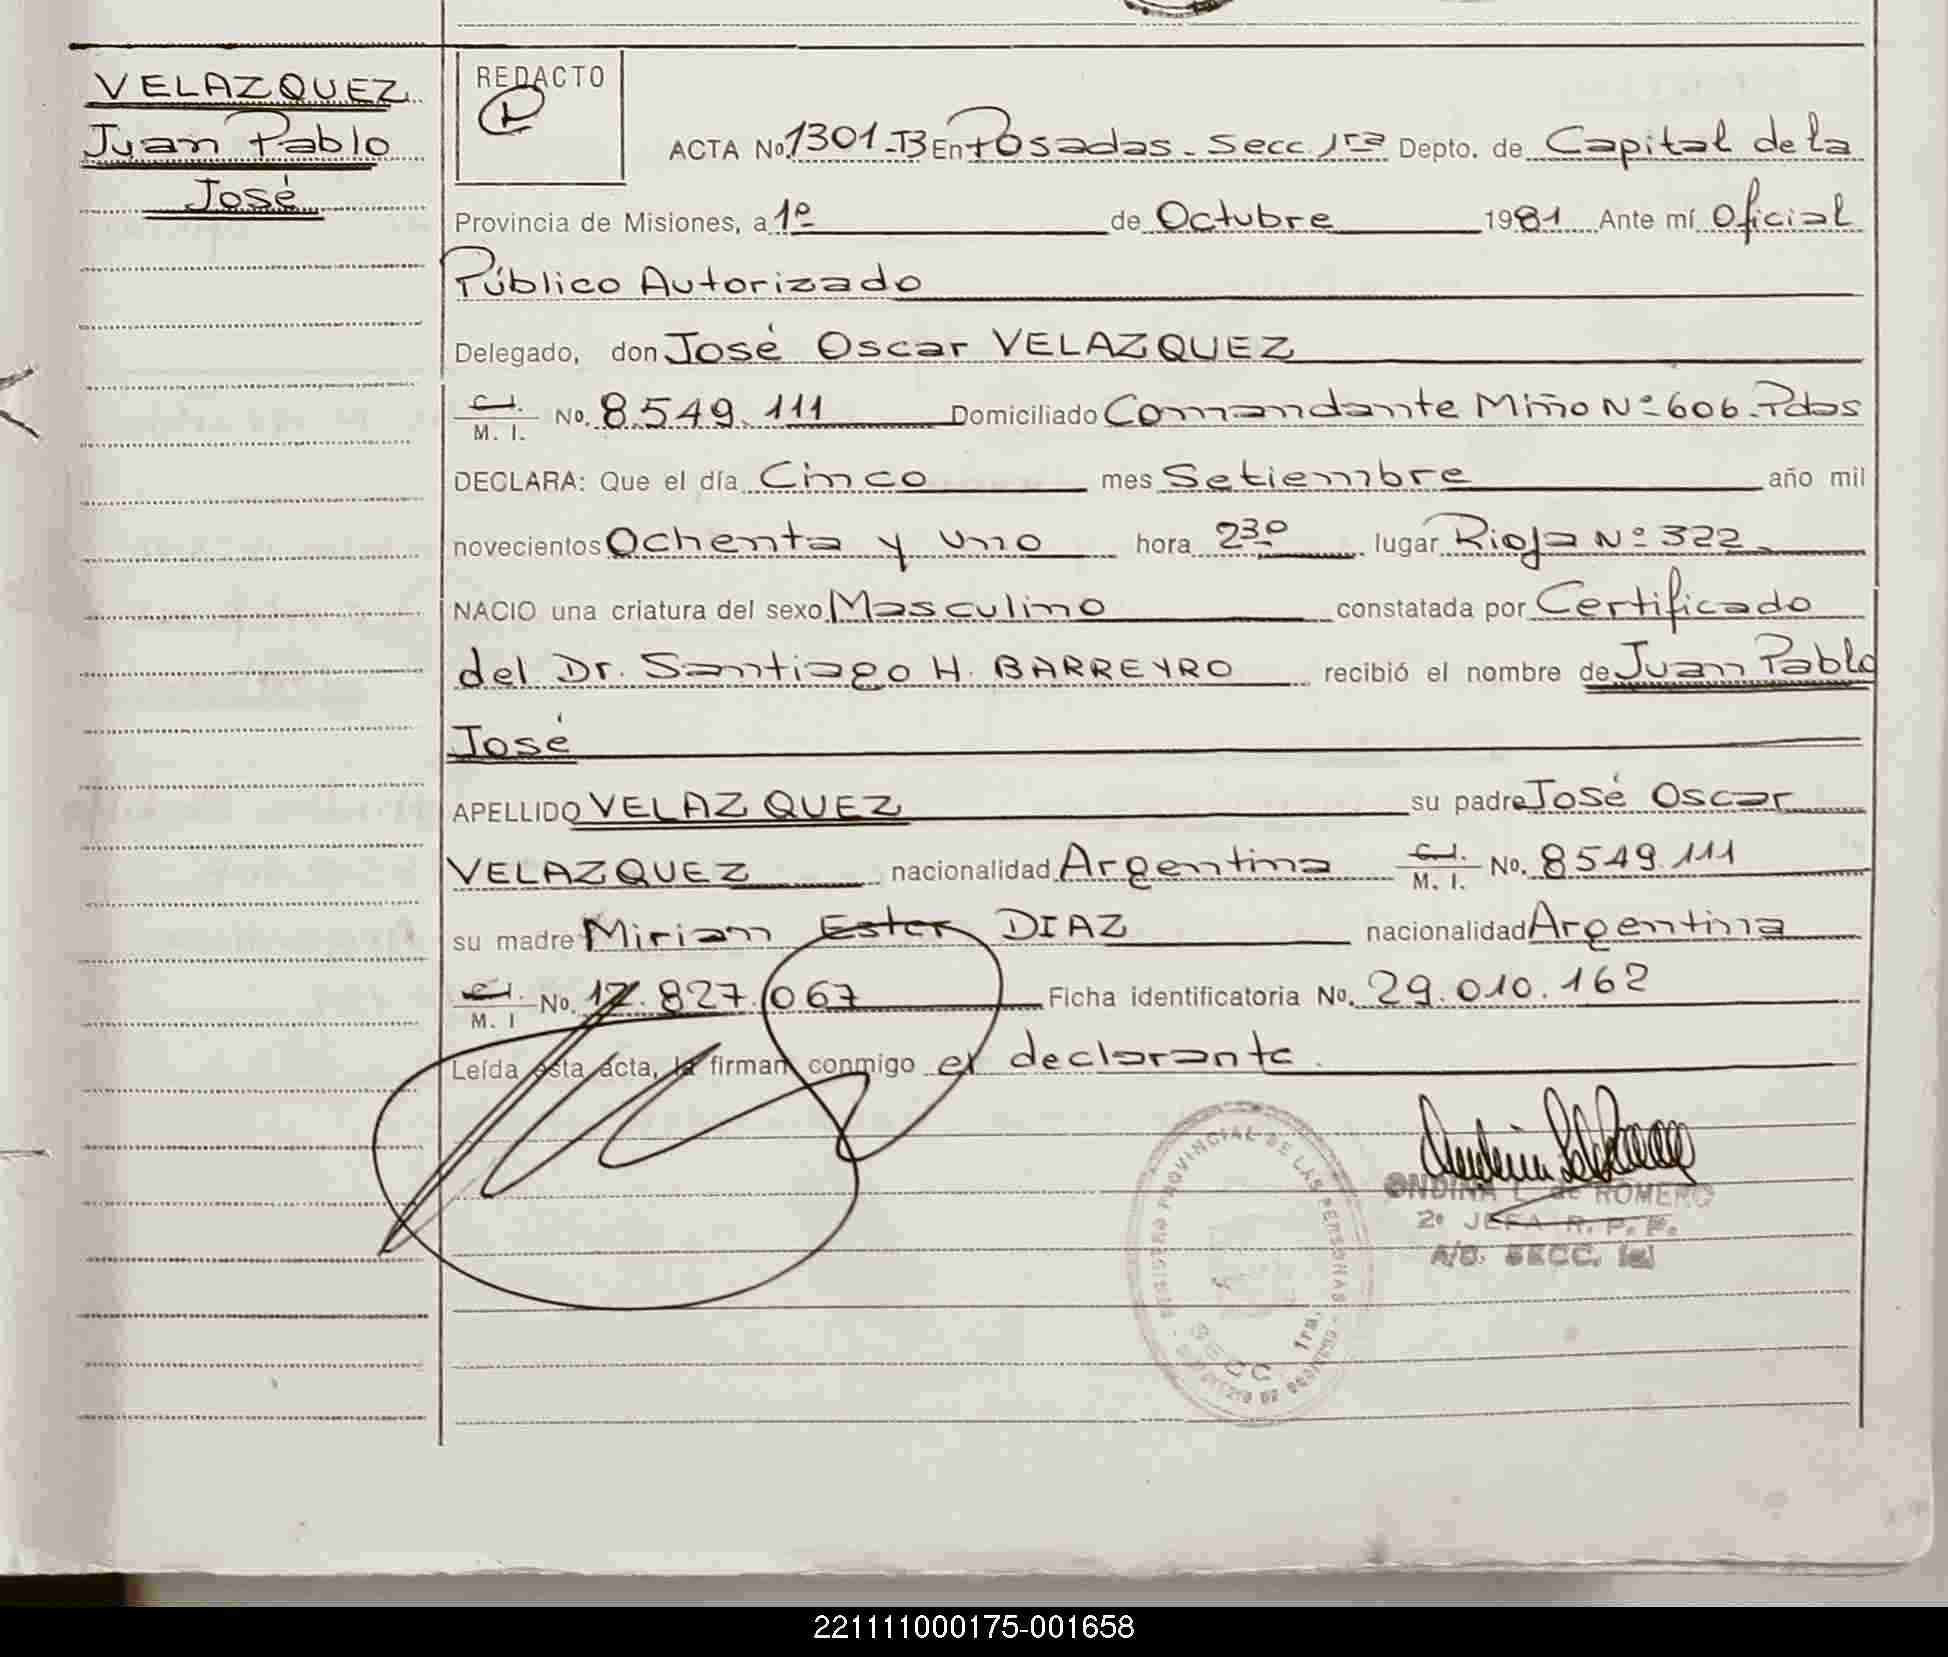 VELAZQUEZ
Juan Pablo
José
REDACTO
ACTA No. 1301-B En Posadas - Secc. 1ra Depto. de Capital de la
Provincia de Misiones, a 1º de Octubre 1981 Ante mí Oficial
Público Autorizado
Delegado, don José Oscar VELAZQUEZ
C.I. M. I. No. 8.549.111 Domiciliado Comandante Miño Nº 606. Pdas
DECLARA: Que el día Cinco mes Setiembre año mil
novecientos Ochenta y Uno hora 23º lugar Rioja Nº 322
NACIO una criatura del sexo Masculino constatada por Certificado
del Dr. Santiago H. BARREYRO recibió el nombre de Juan Pablo
José
APELLIDO VELAZQUEZ su padre José Oscar
VELAZQUEZ nacionalidad Argentina C.I. M. I. No. 8549.111
su madre Mirian Ester DIAZ nacionalidad Argentina
C.I. M. I No. 12.827.067 Ficha identificatoria No. 29.010.162
Leída esta acta, la firman conmigo el declarante.
REGISTRO PROVINCIAL DE LAS PERSONAS
SECC 1ra.
ONDINA L. de ROMERO
2º JEFA R. P. P.
A/C. SECC. 1a
221111000175-001658